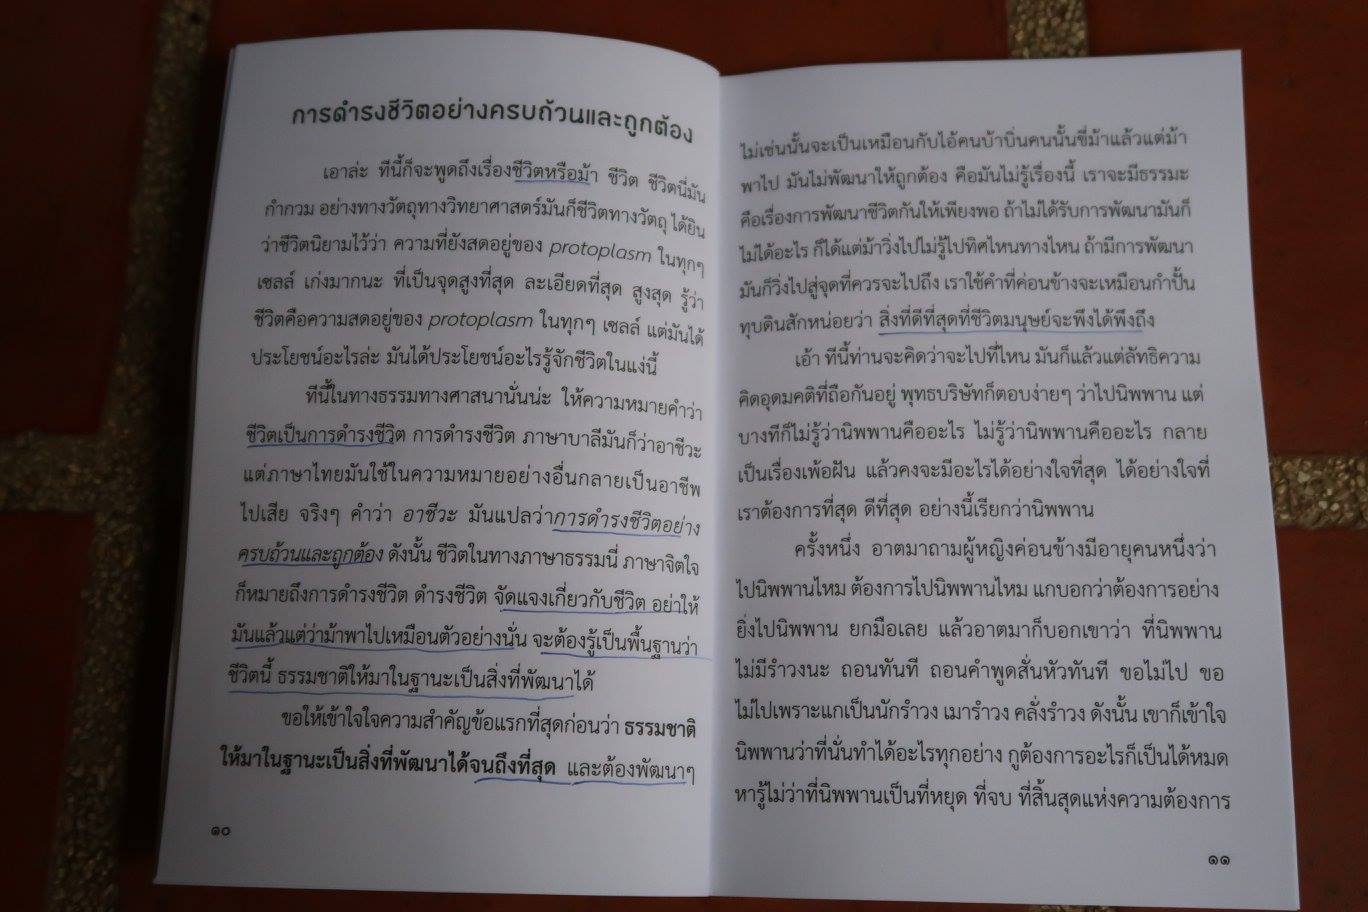 การดำรงชีวิตอย่างครบถ้วนและถูกต้อง
เอาล่ะ ทีนี้ก็จะพูดถึงเรื่องชีวิตหรือม้า ชีวิต ชีวิตนี่มัน
กำกวม อย่างทางวัตถุทางวิทยาศาสตร์มันก็ชีวิตทางวัตถุ ได้ยิน
ว่าชีวิตนิยามไว้ว่า ความที่ยังสดอยู่ของ protoplasm ในทุกๆ
เซลล์ เก่งมากนะ ที่เป็นจุดสูงที่สุด ละเอียดที่สุด สูงสุด รู้ว่า
ชีวิตคือความสดอยู่ของ protoplasm ในทุกๆ เซลล์ แต่มันได้
ประโยชน์อะไรล่ะ มันได้ประโยชน์อะไรรู้จักชีวิตในแง่นี้
ทีนี้ในทางธรรมทางศาสนานั่นน่ะ ให้ความหมายคำว่า
ชีวิตเป็นการดำรงชีวิต การดำรงชีวิต ภาษาบาลีมันก็ว่าอาชีวะ
แต่ภาษาไทยมันใช้ในความหมายอย่างอื่นกลายเป็นอาชีพ
ไปเสีย จริงๆ คำว่า อาชีวะ มันแปลว่าการดำรงชีวิตอย่าง
ครบถ้วนและถูกต้อง ดังนั้น ชีวิตในทางภาษาธรรมนี่ ภาษาจิตใจ
ก็หมายถึงการดำรงชีวิต ดำรงชีวิต จัดแจงเกี่ยวกับชีวิต อย่าให้
มันแล้วแต่ว่าม้าพาไปเหมือนตัวอย่างนั่น จะต้องรู้เป็นพื้นฐานว่า
ชีวิตนี้ ธรรมชาติให้มาในฐานะเป็นสิ่งที่พัฒนาได้
ขอให้เข้าใจใจความสำคัญข้อแรกที่สุดก่อนว่า ธรรมชาติ
ให้มาในฐานะเป็นสิ่งที่พัฒนาได้จนถึงที่สุด และต้องพัฒนาๆ
๑๐
ไม่เช่นนั้นจะเป็นเหมือนกับไอ้คนบ้าบิ่นคนนั้นขี่ม้าแล้วแต่ม้า
พาไป มันไม่พัฒนาให้ถูกต้อง คือมันไม่รู้เรื่องนี้ เราจะมีธรรมะ
คือเรื่องการพัฒนาชีวิตกันให้เพียงพอ ถ้าไม่ได้รับการพัฒนามันก็
ไม่ได้อะไร ก็ได้แต่ม้าวิ่งไปไม่รู้ไปทิศไหนทางไหน ถ้ามีการพัฒนา
มันก็วิ่งไปสู่จุดที่ควรจะไปถึง เราใช้คำที่ค่อนข้างจะเหมือนกำปั้น
ทุบดินสักหน่อยว่า สิ่งที่ดีที่สุดที่ชีวิตมนุษย์จะพึงได้พึงถึง
เอ้า ทีนี้ท่านจะคิดว่าจะไปที่ไหน มันก็แล้วแต่ลัทธิความ
คิดอุดมคติที่ถือกันอยู่ พุทธบริษัทก็ตอบง่ายๆ ว่าไปนิพพาน แต่
บางทีก็ไม่รู้ว่านิพพานคืออะไร ไม่รู้ว่านิพพานคืออะไร กลาย
เป็นเรื่องเพ้อฝัน แล้วคงจะมีอะไรได้อย่างใจที่สุด ได้อย่างใจที่
เราต้องการที่สุด ดีที่สุด อย่างนี้เรียกว่านิพพาน
ครั้งหนึ่ง อาตมาถามผู้หญิงค่อนข้างมีอายุคนหนึ่งว่า
ไปนิพพานไหม ต้องการไปนิพพานไหม แกบอกว่าต้องการอย่าง
ยิ่งไปนิพพาน ยกมือเลย แล้วอาตมาก็บอกเขาว่า ที่นิพพาน
ไม่มีรำวงนะ ถอนทันที ถอนคำพูดสั่นหัวทันที ขอไม่ไป ขอ
ไม่ไปเพราะแกเป็นนักรำวง เมารำวง คลั่งรำวง ดังนั้น เขาก็เข้าใจ
นิพพานว่าที่นั่นทำได้อะไรทุกอย่าง กูต้องการอะไรก็เป็นได้หมด
หารู้ไม่ว่าที่นิพพานเป็นที่หยุด ที่จบ ที่สิ้นสุดแห่งความต้องการ
๑๑